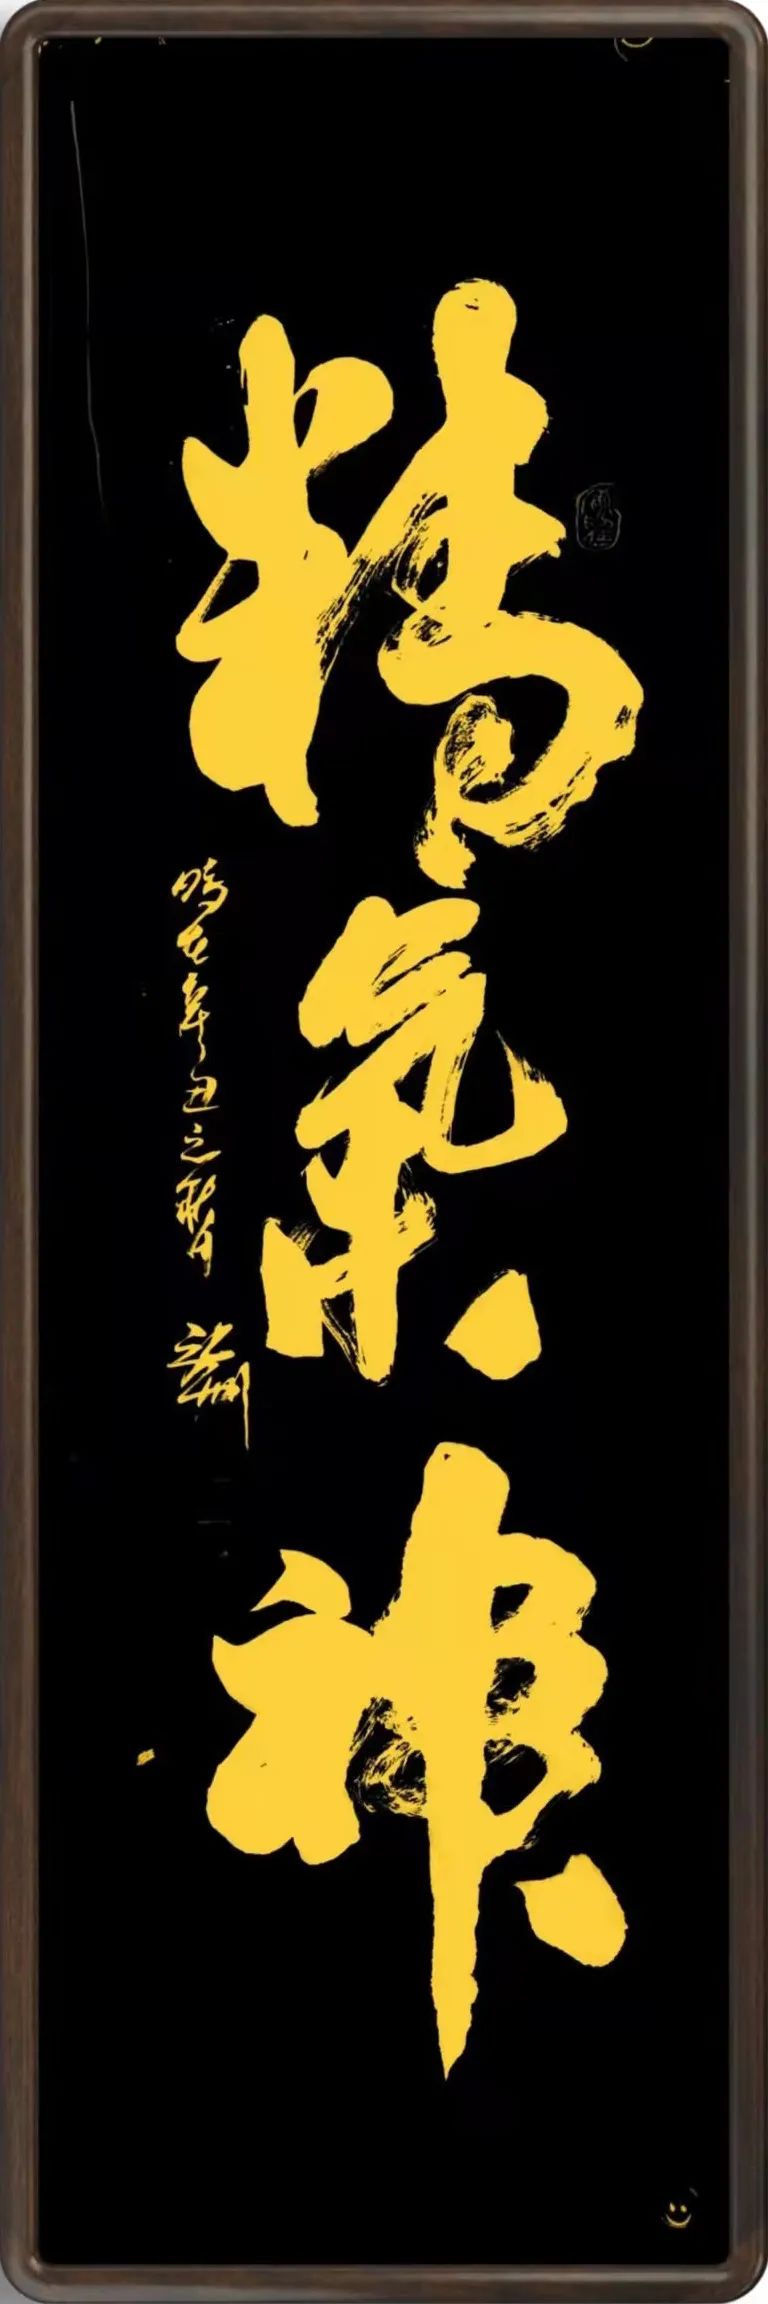 精氣神
時在辛丑之